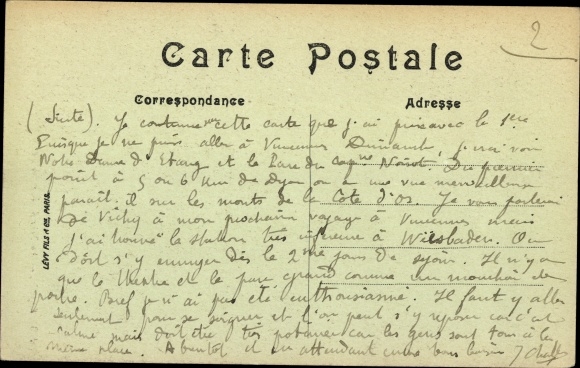 2
Carte Postale
Correspondance Adresse
(Suite). Je continue sur cette carte que j'ai prise avec la 1ère
Puisque je ne puis aller à Vincennes Dimanche, j'irai voir
Notre Dame d'Etang et le Parc du Capne Noisot. Du premier
point à 5 ou 6 Km de Dijon on a une vue merveilleuse
paraît-il sur les monts de la Côte d'Or. Je vous parlerai
de Vichy à mon prochain voyage à Vincennes mais
j'ai trouvé la station très inférieure à Wiesbaden. On
doit s'y ennuyer dès le 2me jour de séjour. Il n'y a
que le théâtre et le parc grand comme un mouchoir de
poche. Bref je n'ai pas été enthousiasmé. Il faut y aller
seulement pour se soigner et l'on peut s'y reposer car c'est
calme mais doit être très potinier car les gens sont tous à la
même place. A bientôt et en attendant encore bons baisers
LÉVY FILS & Cie, PARIS